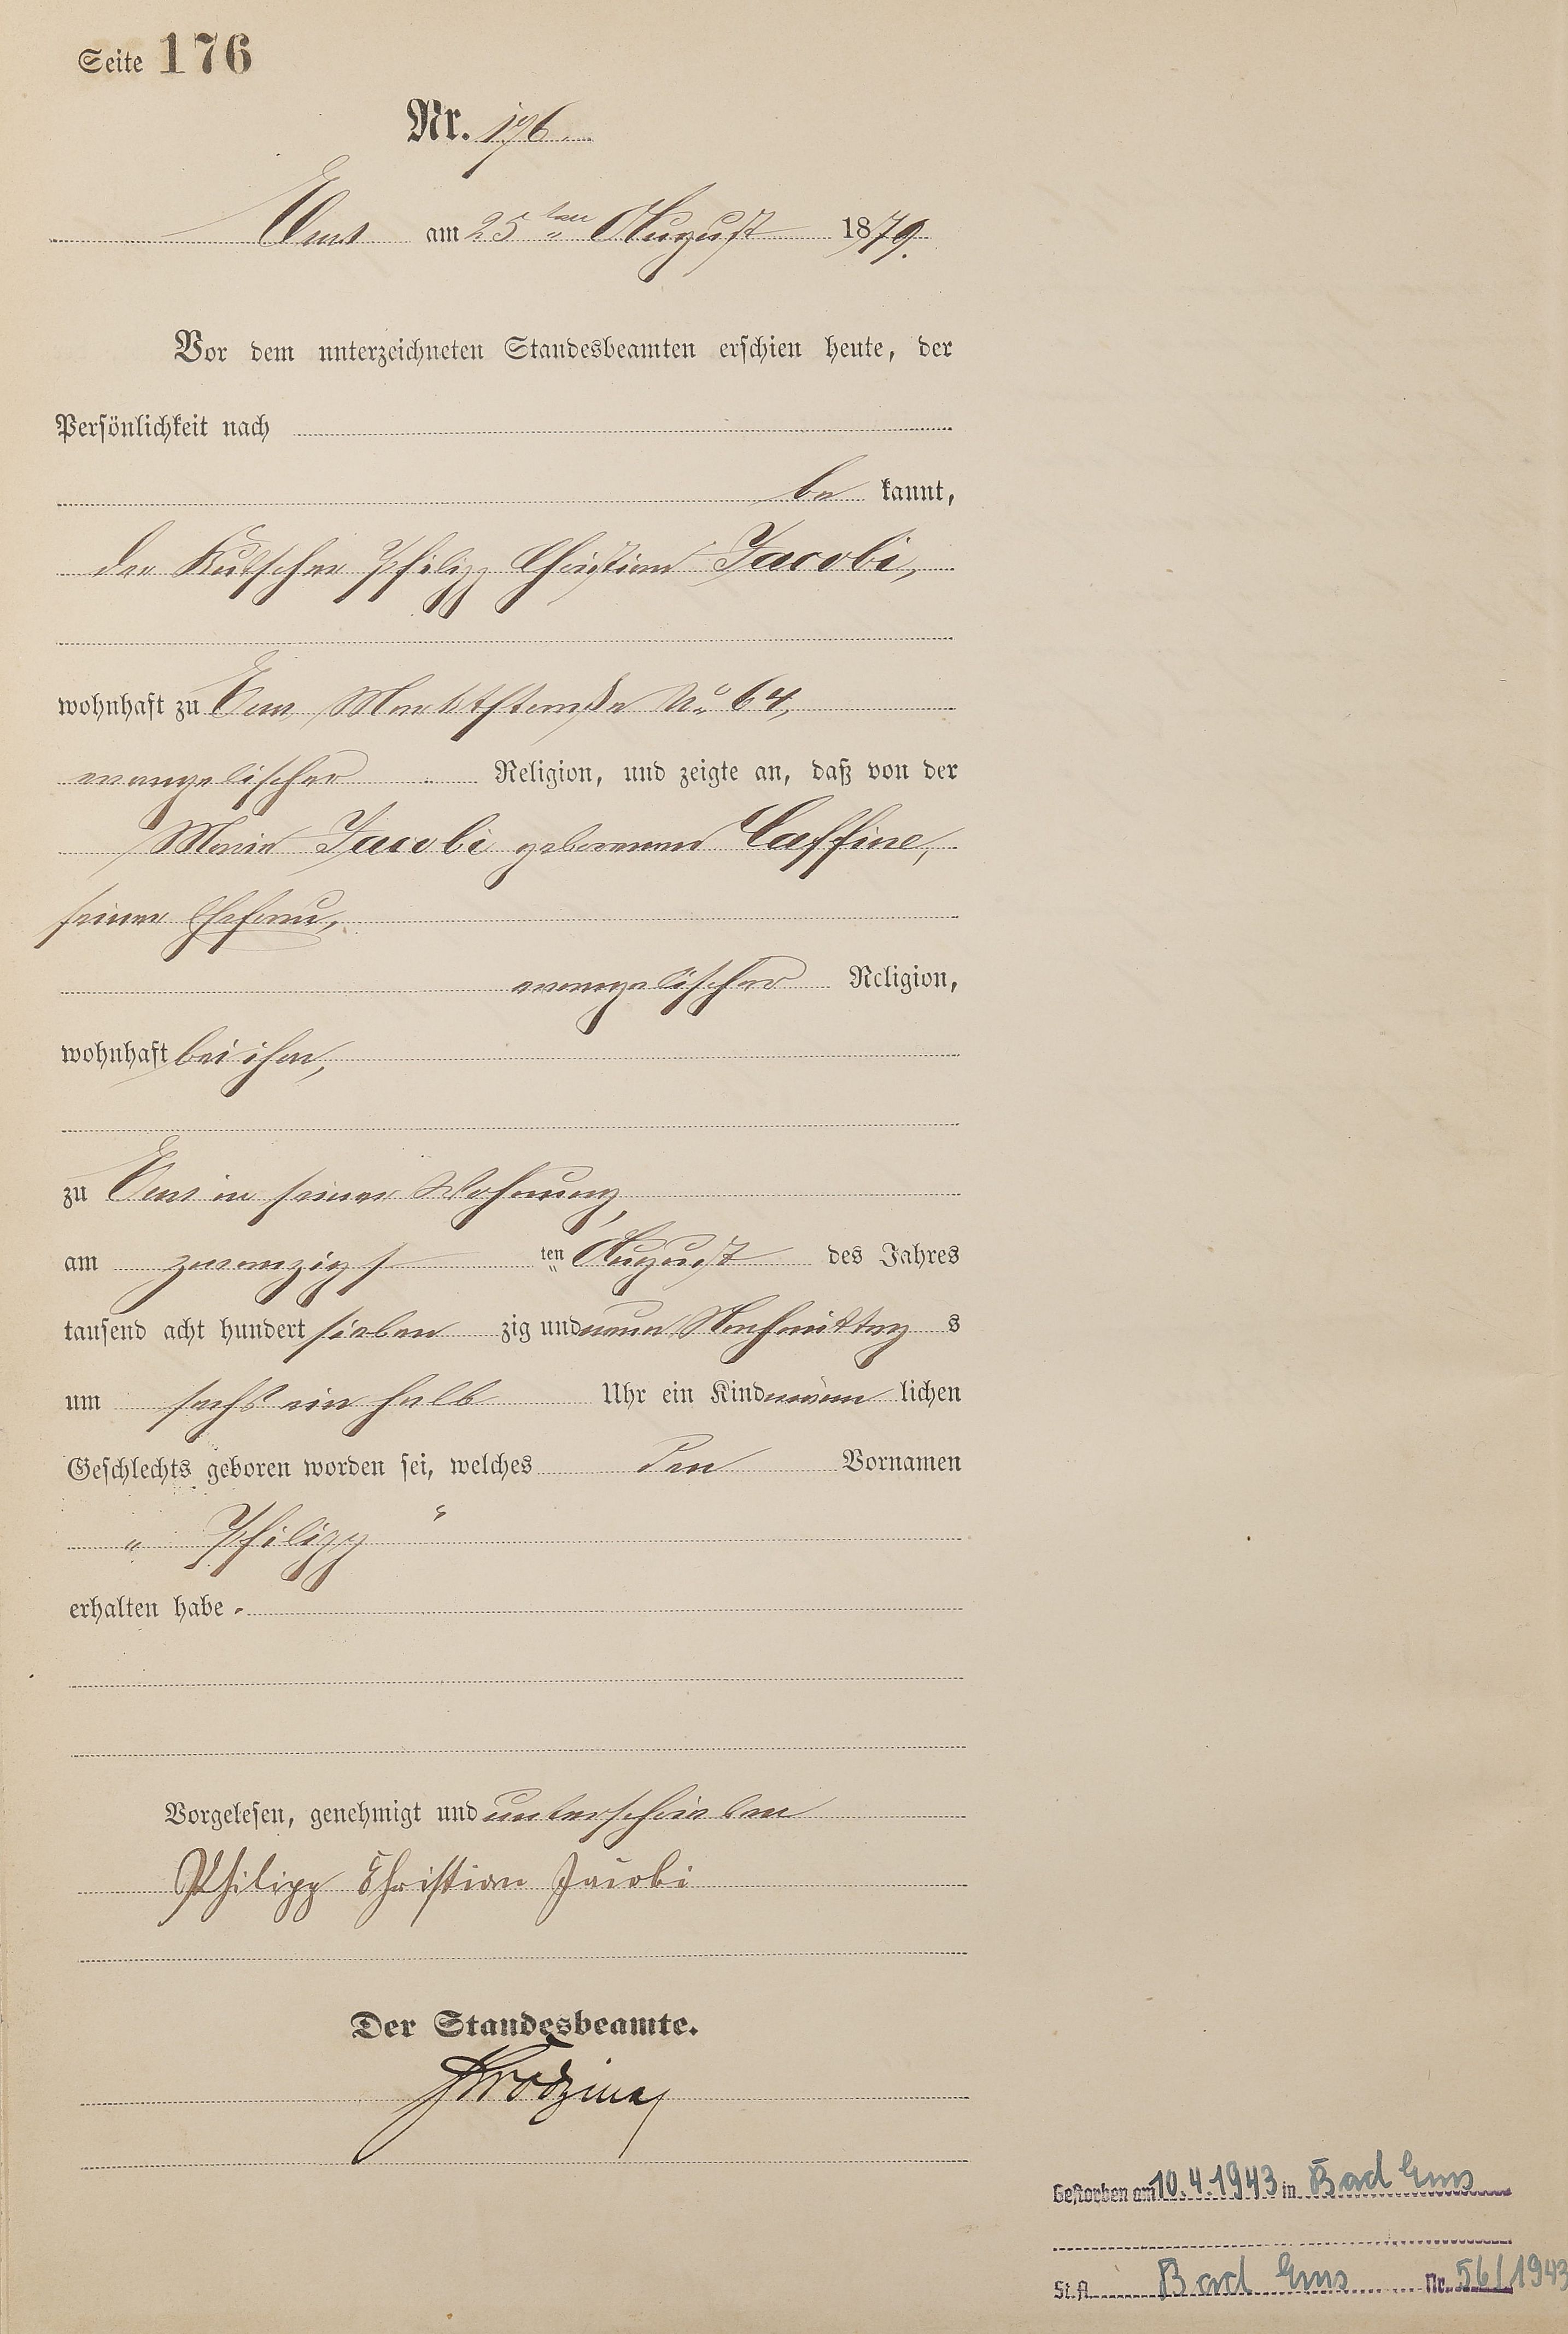 Seite 176
Nr. 176
Ems am 25ten August 1879.
Vor dem unterzeichneten Standesbeamten erschien heute, der
Persönlichkeit nach
be kannt,
der Kutscher Philipp Christian Jacobi,
wohnhaft zu Ems, Marktstraße No 64,
evangelischer Religion, und zeigte an, daß von der
Maria Jacobi geborenen Caffine,
seiner Ehefrau,
evangelischer Religion,
wohnhaft bei ihm,
zu Ems in seiner Wohnung,
am zwanzigsten August des Jahres
tausend acht hundert siebenzig und neun Nachmittags
um sechs ein halb Uhr ein Kind männlichen
Geschlechts geboren worden sei, welches den Vornamen
„ Philipp “
erhalten habe.
Vorgelesen, genehmigt und unterschrieben
Philipp Christian Jacobi
Der Standesbeamte.
Gestorben am 10.4.1943 in Bad Ems
St.A. Bad Ems Nr. 56/1943